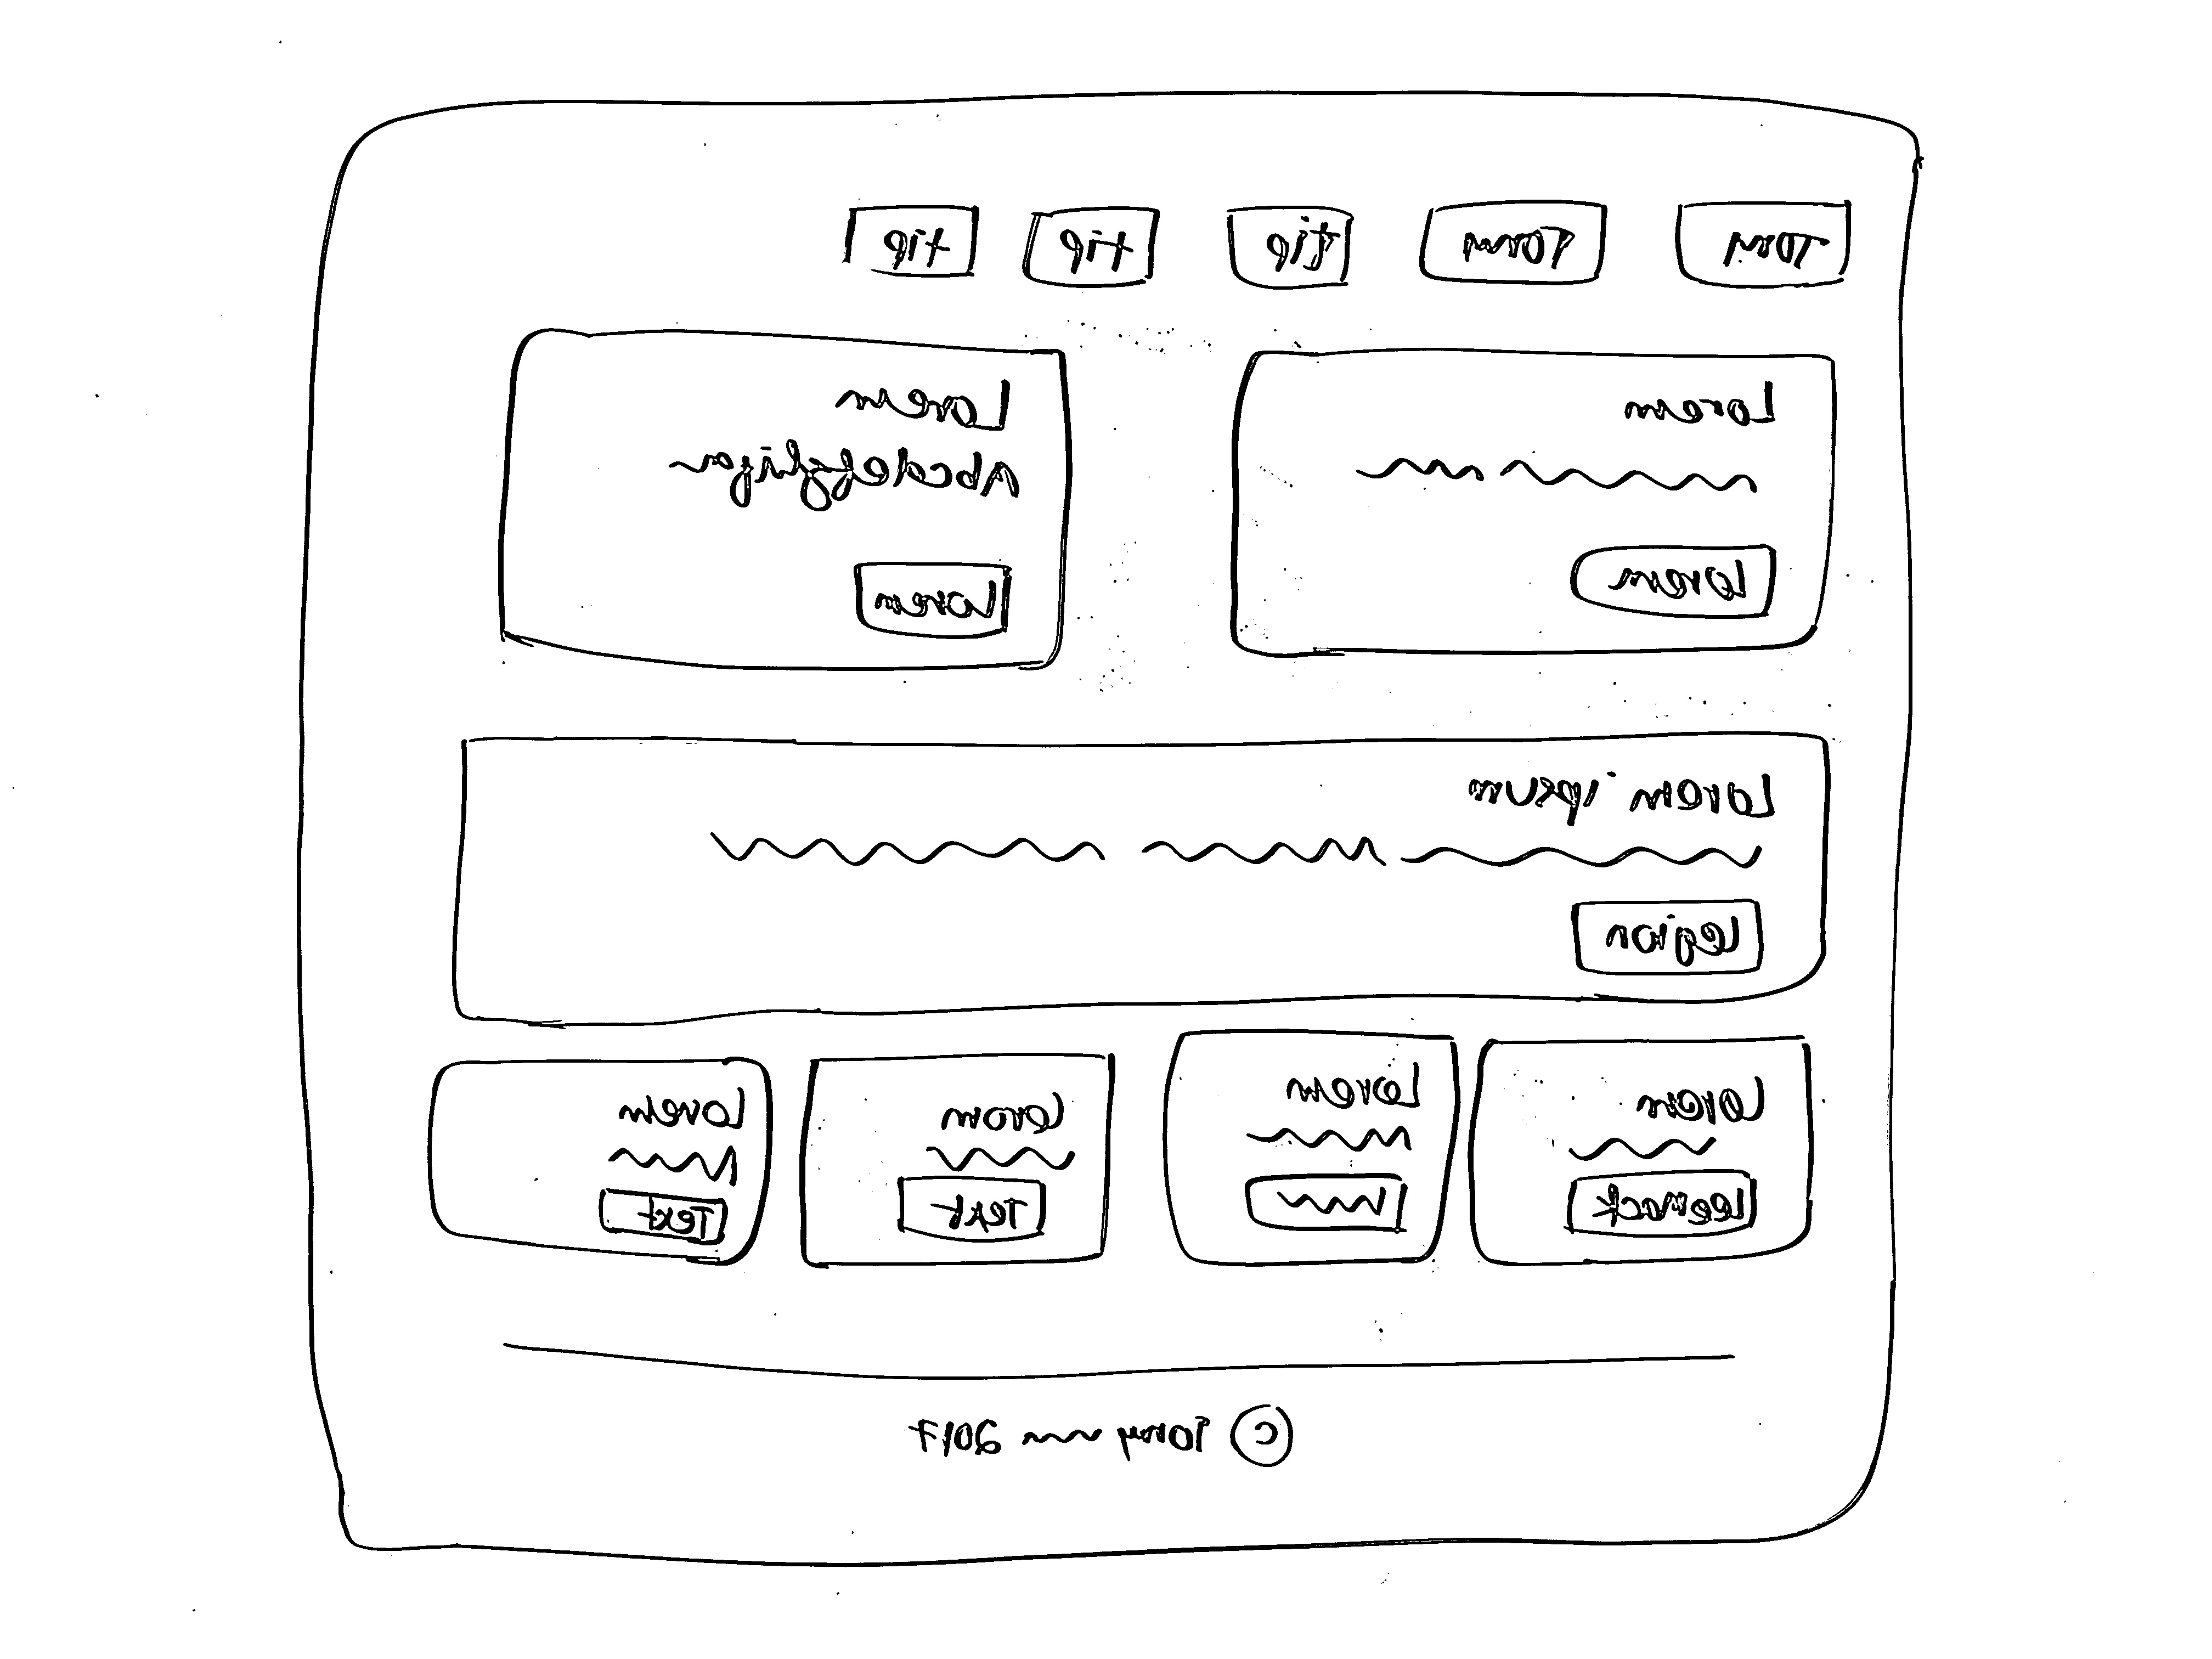 Tony Tony tip tip tip
Lorem
Lorem
Lorem
Abcdefghijan
Lorem
Lorem ipsum
Legion
Lorem
Leemack
Lorem
Lorom
Text
Lorem
Text
© Tony 2017